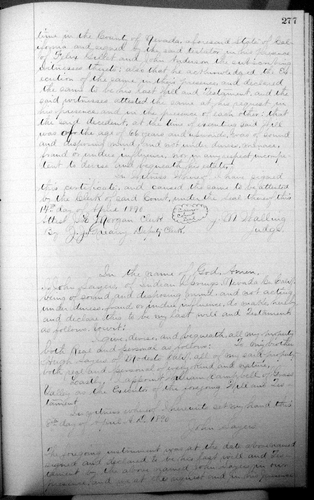 277
time in the County of Nevada aforesaid State of Cal-
ifornia and signed by the said testator, in the presence
of Felix Gillet and John Anderson the subscribing
witnesses thereto; also that he acknowledged the Ex-
ecution of the same in their presence and declared
the same to be his last Will and Testament, and the
said witnesses attested the same at his request, in
his presence and in the presence of each other; that
the said decedent, at the time of executing said will
was of the age of 66 years and upwards, was of sound
and disposing mind, and not under duress, menace,
fraud or undue influence, nor in any respect incompe-
tent to devise and bequeath his estate.
In witness whereof I have signed
this certificate, and caused the same to be attested
by the Clerk of said Court, under the seal thereof this
day of 1890
Attest Morgan Clerk
By Deputy Clerk
Walling
Judge.
In the name of God, Amen,
I John Rogers of Indian Springs Nevada Co
being of sound and disposing mind and not acting
under duress, fraud or undue influence, do make
and declare this to be my last will and Testament
as follows to wit:
I give, devise, and bequeath, all my property
both Real and personal as follows: To my brother
Hugh Rogers of Modesto Calif, all of my said property,
both real and personal of every kind and nature.
Lastly I appoint William Campbell of Grass
Valley as the Executor of the foregoing Will and Tes-
tament
In witness whereof I hereunto set my hand this
day of April A.D. 1890
John Rogers
The foregoing instrument was at the date above named
signed and declared to be his last will and Tes-
tament by the above named John Rogers in our
presence, and we at his request and in his presence